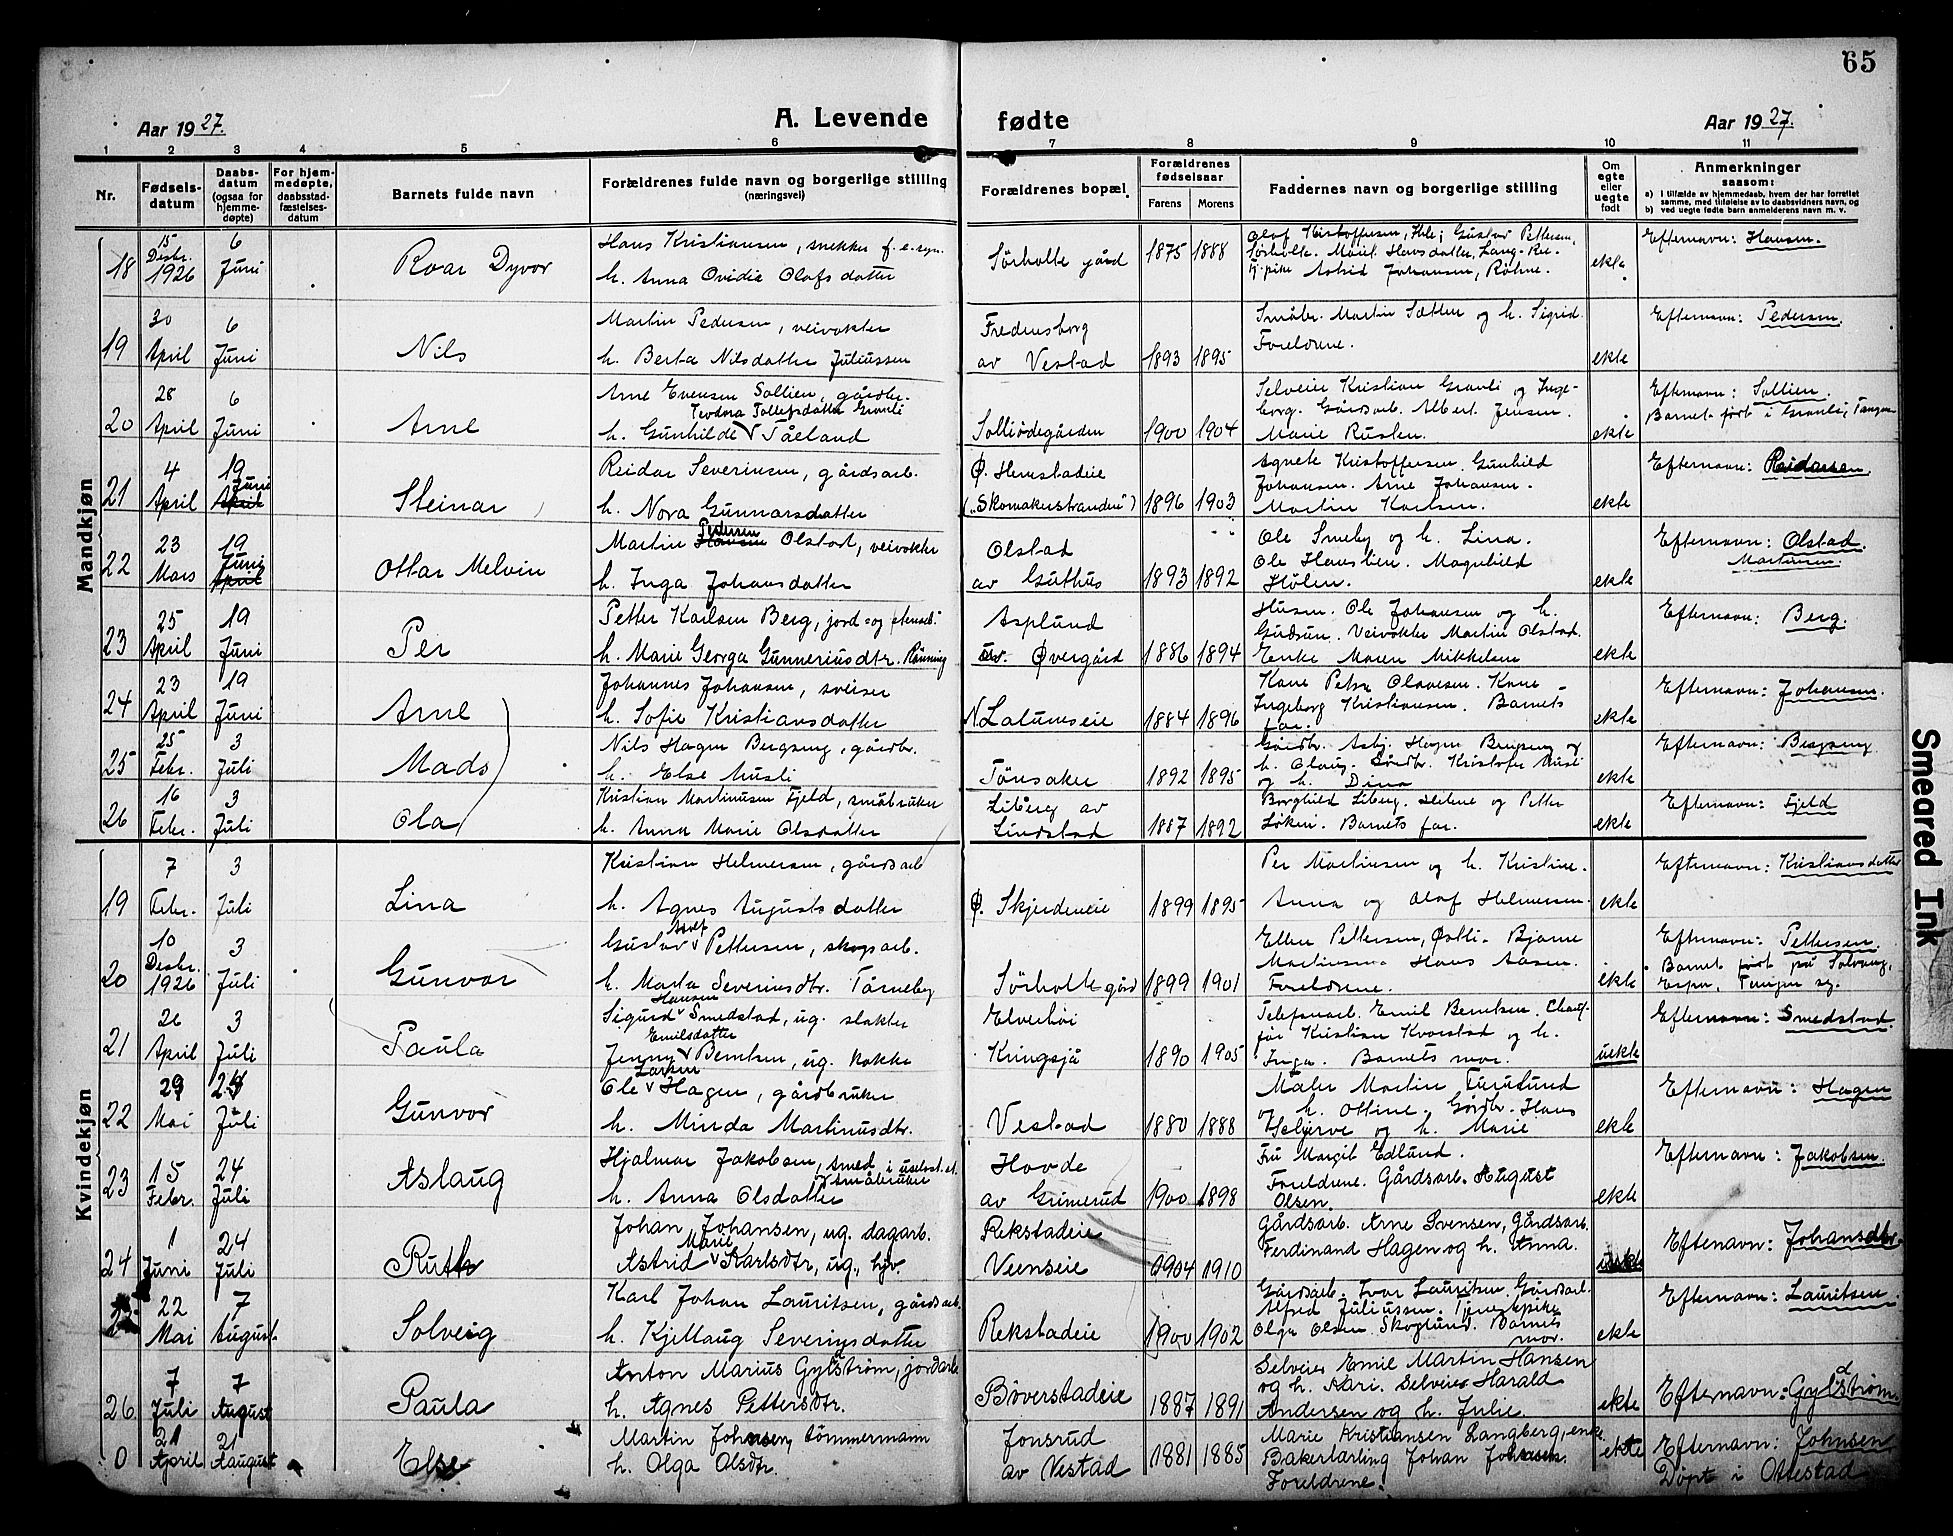 65
Aar 1927.
A. Levende fødte
Aar 1927.
1 2 3 4 5 6 7 8 9 10 11
Nr.
Fødsels-
datum
Daabs-
datum
(ogsaa for
hjemme-
døpte)
For hjem-
medøpte,
daabsstad-
fæstelses-
datum
Barnets fulde navn
Forældrenes fulde navn og borgerlige stilling
(næringsvei)
Forældrenes bopæl
Forældrenes
fødselsaar
Farens Morens
Faddernes navn og borgerlige stilling
Om
egte
eller
uegte
født
Anmerkninger
saasom:
a) I tilfælde av hjemmedaab, hvem der har forrettet
samme, med tilføielse av to daabsvidners navn, og
b) ved uegte fødte barn anmelderens navn m. v.
Mandkjøn
18 15 Desbr. 1926 6 Juni Roar Dyvor
Hans Kristiansen, snekker
h. Anna Ovidie Olafsdatter
Sørholte gård 1875 1888
Olaf Kristoffersen, Gustav Pettersen,
Sørholte. Marit Hansdatter,
Astrid Johansen, Røhne.
ekte
Efternavn: Hansen.
19 30 April 6 Juni Nils
Martin Pedersen, veivokter
h. Berta Nilsdatter Juliussen
Fredensborg
av Vestad 1893 1895
Småbr. Martin Sætten og h. Sigrid.
Foreldrene.
ekte
Efternavn: Pedersen.
20 28 April 6 Juni Arne
Arne Evensen Sollien, gårdbr.
Teodora Tollefsdatter Gravli
h. Gunhilde v Tåeland
Solliødegården 1900 1904
Selveier Kristian Gravli og Inge-
borg. Gårdsarb. Albert Jensen.
Marie Rusten.
ekte
Efternavn: Sollien.
Barnet født i Gravli, Tangen
21 4 April 19 Juni April Steinar
Reidar Severinsen, gårdsarb.
h. Nora Gunnarsdatter
Ø. Hemstadeie
("Skomakerstranden") 1896 1903
Agnete Kristoffersen. Gunhild
Johansen. Arne Johansen.
Martin Karlsen.
ekte
Efternavn: Reidarsen.
22 23 Mars 19 Juni April Ottar Melvin
Pedersen
Martin Hansen Olstad, veivokter
h. Inga Johansdatter
Olstad
av Guthus 1893 1892
Ole Smeby og h. Lina.
Ole Hanslien. Magnhild
Holen.
ekte
Efternavn: Olstad.
Martinsen.
23 25 April 19 Juni Per
Petter Karlsen Berg, jord- og
h. Marie Georga Gunneriusdtr. Rønning
Asplund
av. Øvergård 1886 1894
Husm. Ole Johansen og h.
Gudrun. Veivokter Martin Olstad.
Enke Maren Mikkelsen
ekte
Efternavn: Berg.
24 23 April 19 Juni Arne
Johannes Johansen, sveiser
h. Sofie Kristiansdatter
N. Lalumseie 1884 1896
Kone Petra Olavesen. Kone
Ingeborg Kristiansen. Barnets
far.
ekte
Efternavn: Johansen.
25 25 Febr. 3 Juli Mads
Nils Hagen Bergseng, gårdbr.
h. Else Musli
Tønsaker 1892 1895
Gårdbr. Asbj. Hagen Bergseng og
h. Olaug. Gårdbr. Kristofer Musli
og h. Dina
ekte
Efternavn: Bergseng.
26 16 Febr. 3 Juli Ola
Kristian Martinusen Fjeld, småbruker
h. Anna Marie Olsdatter
Liberg av
Lindstad 1887 1892
Borghild Liberg. Helene og Petter
Løken. Barnets far.
ekte
Efternavn: Fjeld
Kvindekjøn
19 7 Febr. 3 Juli Lina
Kristian Helmersen, gårdsarb
h. Agnes Augustsdatter
Ø. Skjerdeneie 1899 1895
Per Martinsen og h. Kristine.
Anna og Olaf Helmersen.
ekte
Efternavn: Kristiansdatter
20 10 Desbr. 1926 3 Juli Gunvor
Adolf
Gustav v Pettersen, skogsarb.
h. Marta Severinsdtr. Tårneby
Sørholte gård 1899 1901
Ellen Pettersen, Østli. Bjarne
Martinsen. Hans Aasen.
Foreldrene.
ekte
Efternavn: Pettersen.
Barnet født på Solvang,
Espa, Tangen sg.
21 26 April 3 Juli Paula
Hansen
Sigurd v Smedstad, ug. slakter
Emilsdatter
Jenny v Berntsen, ug. kokke
Elverhøi
Kringsjå 1890 1905
Telefonarb. Emil Berntsen. Chauf-
før Kristian Kvarstad og h.
Inga. Barnets mor.
uekte
Efternavn: Smedstad.
22 29 Mai 24 Juli Gunvor
Larsen
Ole v Hagen, gårdbruker
h. Minda Martinusdtr.
Vestad 1880 1888
Maler Martin Furulund
og h. Ottine. Gårdbr. Hans
Helgerve og h. Marie
ekte
Efternavn: Hagen
23 15 Febr. 24 Juli Aslaug
Hjalmar Jakobsen, smed
småbruker
h. Anna Olsdatter
Hovde
av Grimerud 1900 1898
Fru Margit Edlund.
Foreldrene. Gårdsarb. August
Olsen.
ekte
Efternavn: Jakobsen.
24 1 Juni 24 Juli Ruth
Johan Johansen, ug. dagarb.
Marie
Astrid v Karlsdtr, ug., hjv.
Rekstadeie
Veenseie 1904 1910
Gårdsarb. Arne Svensen, Gårdsarb.
Ferdinand Hagen og h. Anna.
uekte
Eftenavn: Johansdtr.
25 22 Mai 7 August Solveig
Karl Johan Lauritsen, gårdsarb.
h. Kjellaug Severinsdatter
Rekstadeie 1900 1902
Gårdsarb. Ivar Lauritsen. Gårdsarb.
Alfred Juliussen. Tjenestepike
Olga Olsen Skoglund. Barnets
mor.
ekte
Efternavn: Lauritsen.
26. 7 Juli 7 August Paula
Anton Marius Gyldstrøm, jordarb.
h. Agnes Pettersdtr.
Bøverstadeie 1887 1891
Selveier Emil Martin Hansen
og h. Kari. Selveier Harald
Andersen og h. Julie.
ekte
Efternavn: Gyldstrøm.
0 21 April 21 August Else
Martin Johnsen, tømmermann
h. Olga Olsdtr.
Jonsrud
av Vestad 1881 1885
Marie Kristiansen Langberg, enke
Bakerlærling Johan Johnsen.
Foreldrene.
ekte
Efternavn: Johnsen
Døpt i Ottestad
Smeared Ink